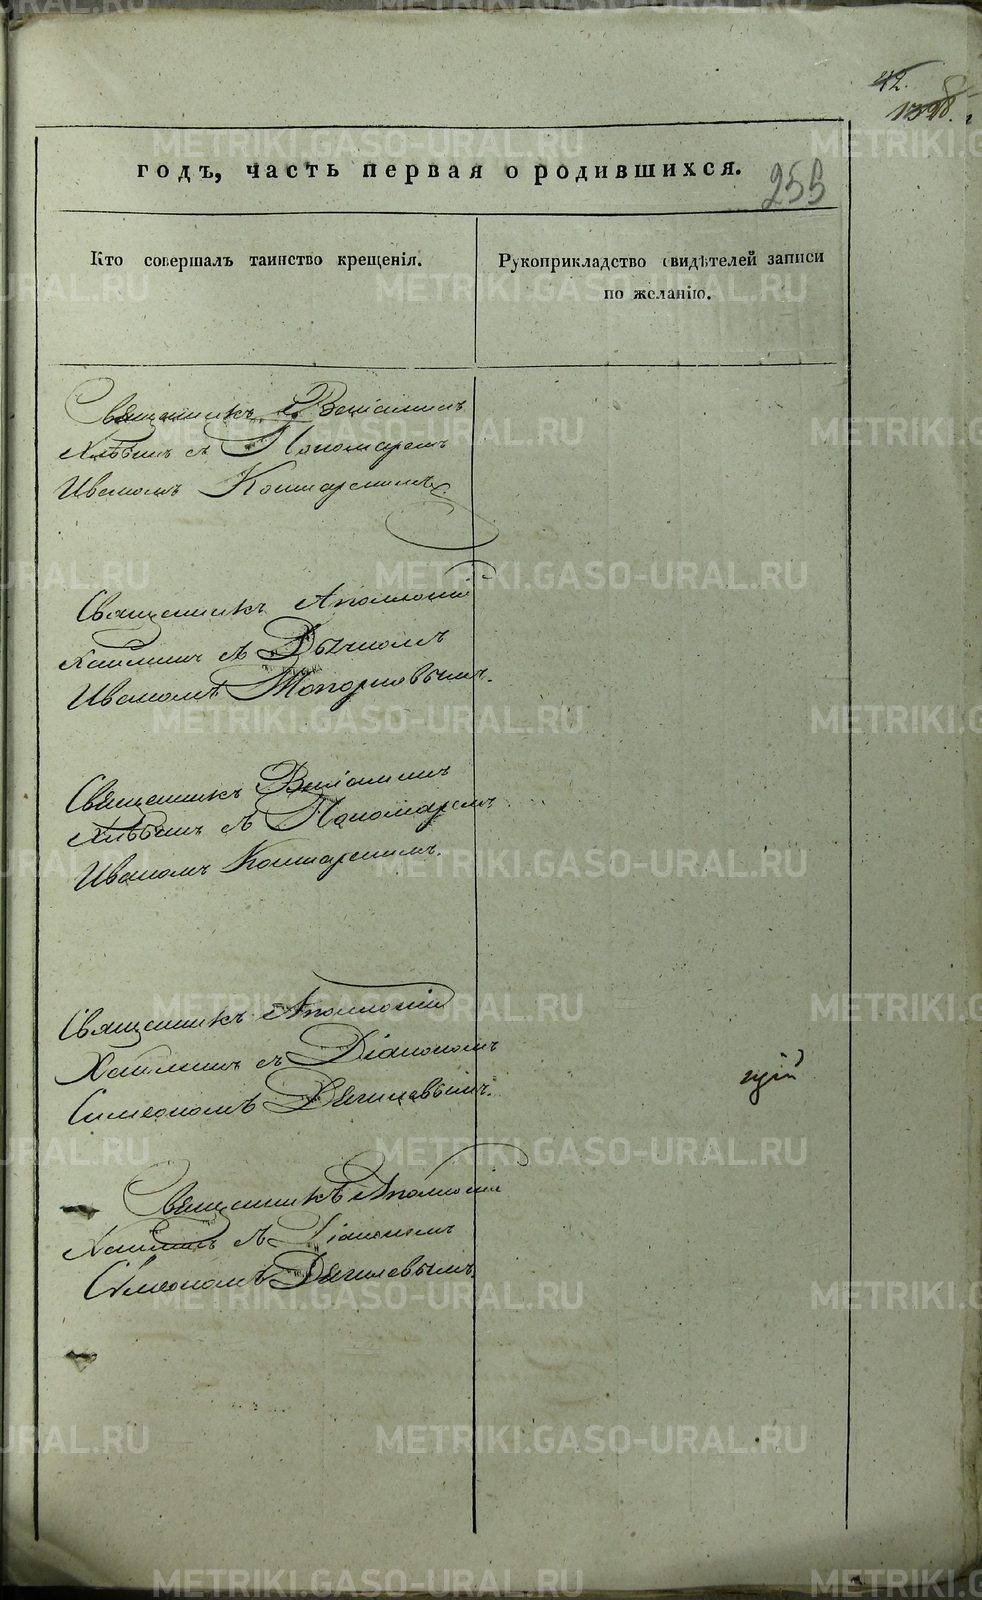 42.
1328.
годъ, часть первая о родившихся.
255
Кто совершалъ таинство крещенія.
Рукоприкладство свидѣтелей записи
по желанію.
Священникъ Веніаминъ
Хлѣбинъ съ Пономаремъ
Иваномъ Коштарскимъ
Священникъ Аполлоній
съ Дьячкомъ
Иваномъ Топорковымъ.
Священникъ Веніаминъ
Хлѣбинъ съ Пономаремъ
Иваномъ Коштарскимъ.
Священникъ Аполлоній
съ Діакономъ
Симеономъ Дягилевымъ.
цій
Священникъ Аполлоній
съ Діакономъ
Симеономъ Дягилевымъ.
METRIKI.GASO-URAL.RU